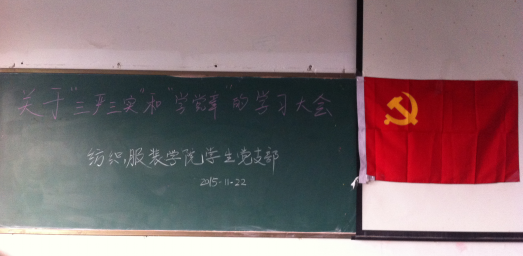 关于"三严三实"和"学党章"的学习大会
纺织,服装学院学生党支部
2015-11-22